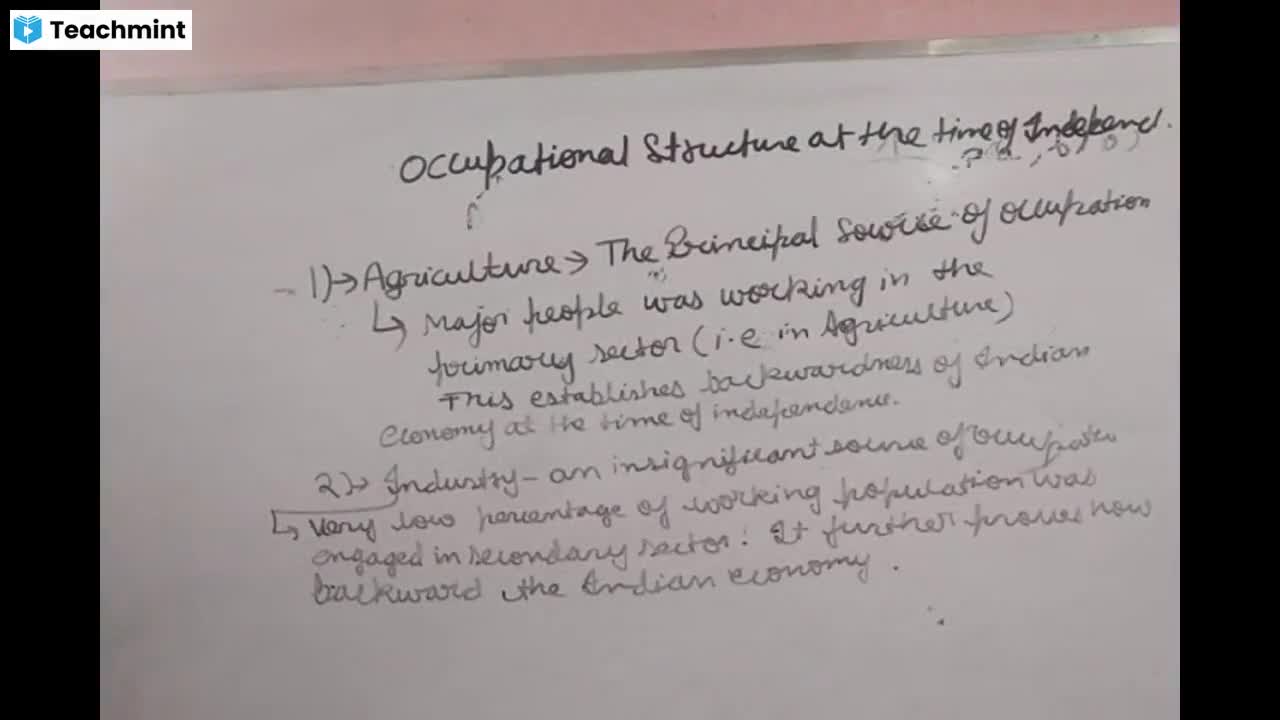 Teachmint
Occupational Structure at the time of Independ.
1)→ Agriculture → The Principal Source of occupation
↳ Major people was working in the
primary sector (i.e in Agriculture)
This establishes backwardness of Indian
economy at the time of independence.
2)→ Industry - an insignificant source of
↳ very low percentage of working population was
engaged in secondary sector. It further proves how
backward the Indian economy.